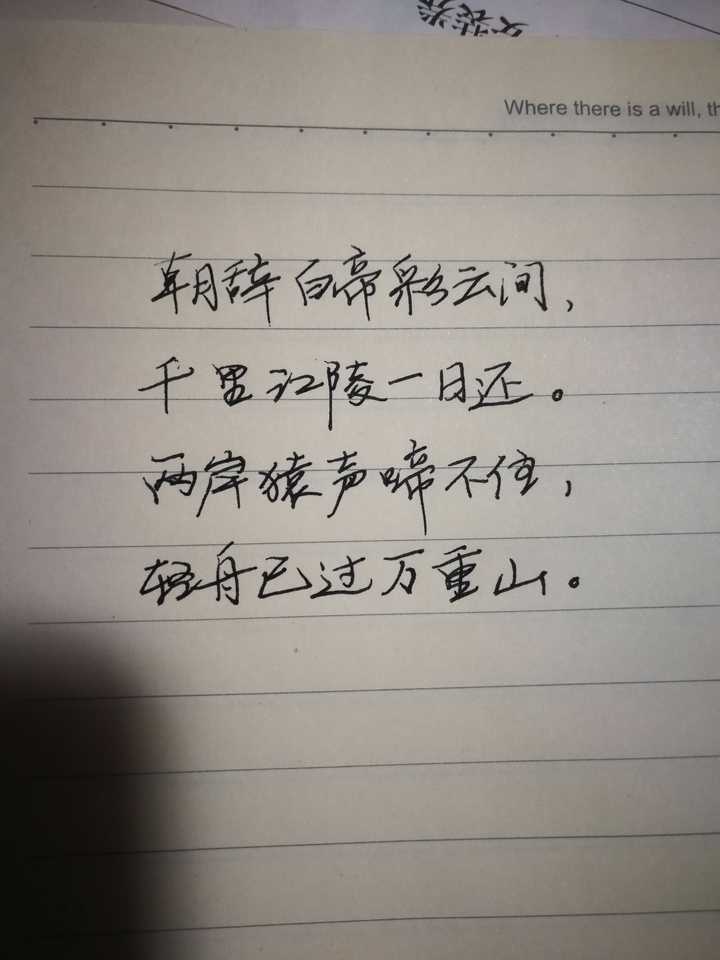 Where there is a will, th
朝辞白帝彩云间，
千里江陵一日还。
两岸猿声啼不住，
轻舟已过万重山。